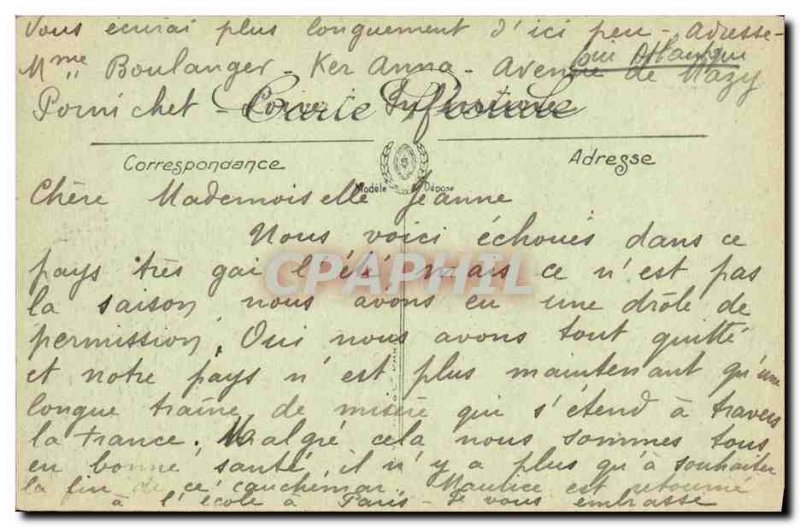 Vous écrirai plus longuement d'ici peu - Adresse -
Mme Boulanger - Ker Anna - Avenue de Mazy
Pornichet - Loire Inférieure
Carte Postale
Correspondance
Adresse
Modèle Déposé
Chère Mademoiselle Jeanne
Nous voici échoués dans ce
pays très gai l'été mais ce n'est pas
la saison, nous avons eu une drôle de
permission, Oui nous avons tout quitté
et notre pays n'est plus maintenant qu'une
longue traîne de misère qui s'étend à travers
la France. Malgré cela nous sommes tous
en bonne santé, il n'y a plus qu'à souhaiter
la fin de ce cauchemar. Maurice est retourné
à l'école à Paris - Je vous embrasse
CPAPHIL